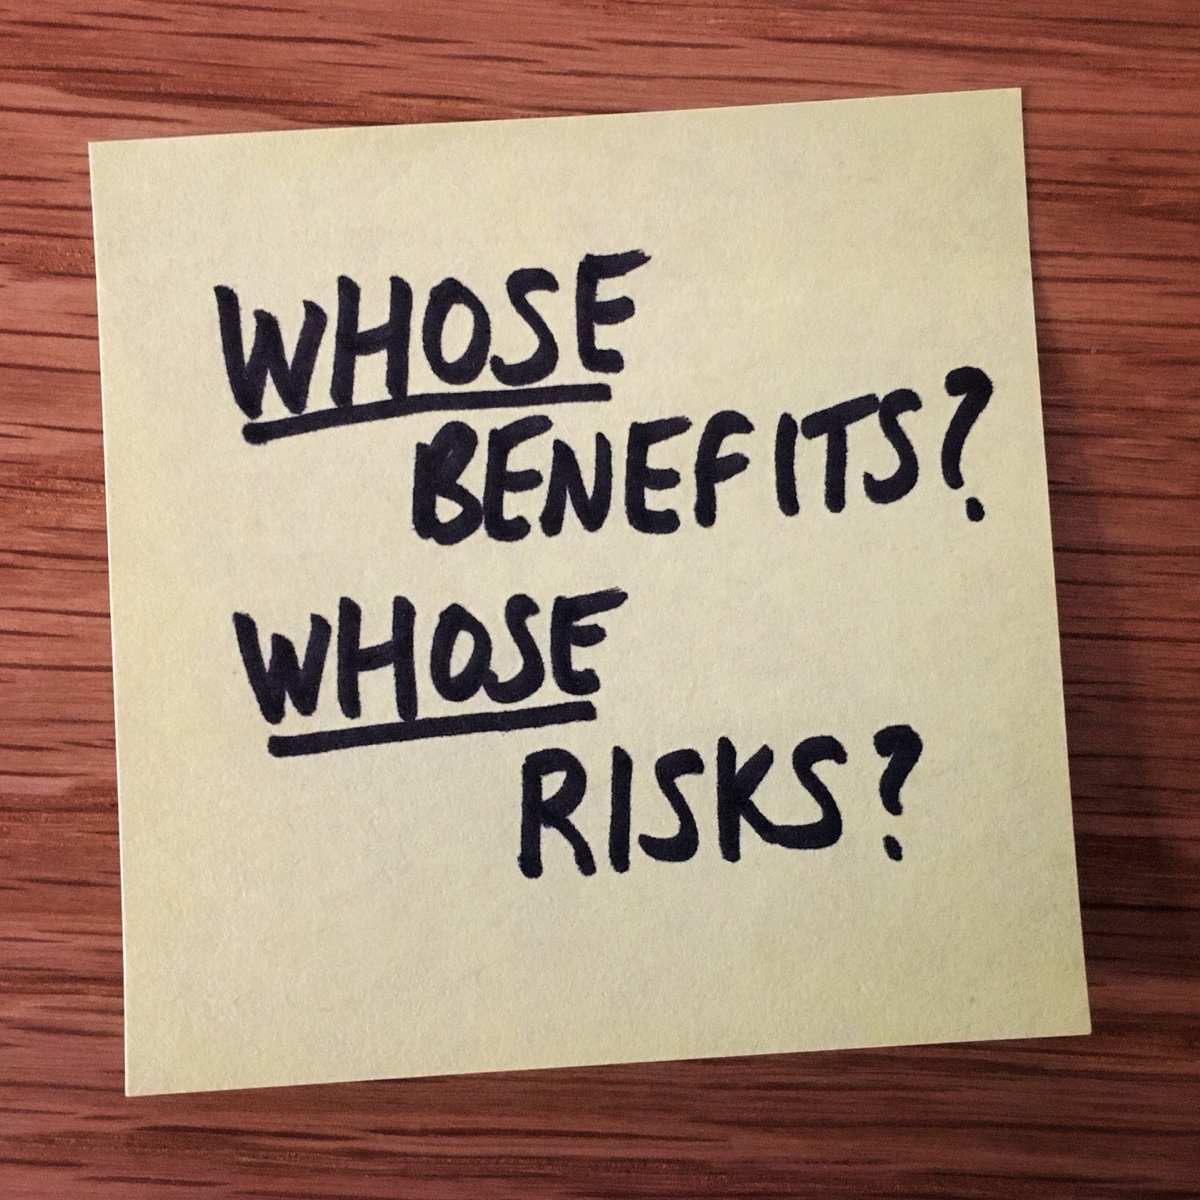 WHOSE
BENEFITS?
WHOSE
RISKS?